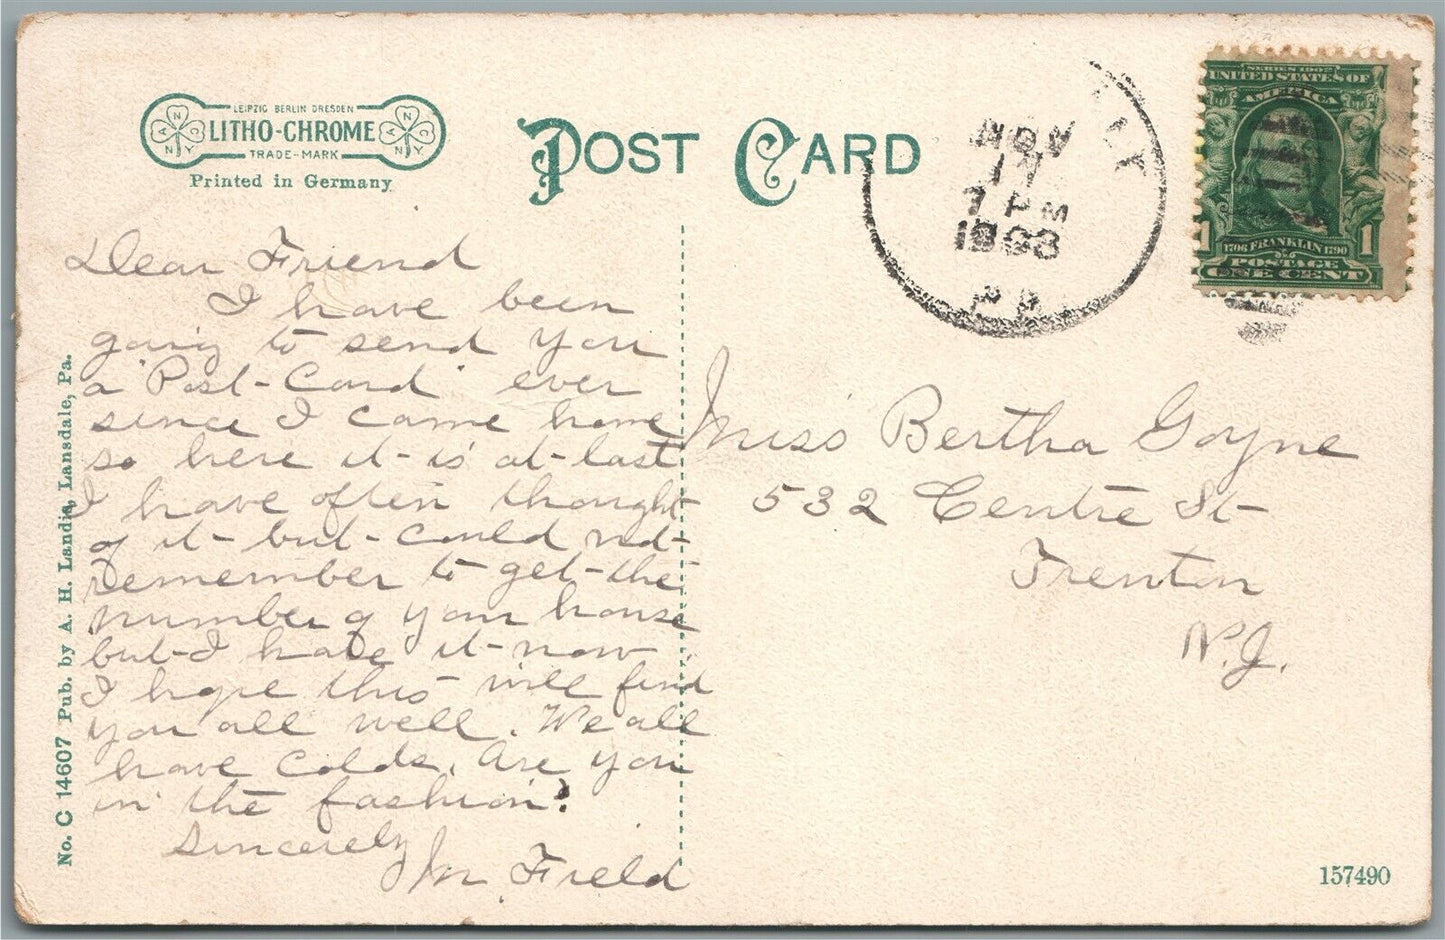 LEIPZIG BERLIN DRESDEN
LITHO-CHROME
TRADE-MARK
Printed in Germany
POST CARD
NOV
17
7 PM
1908
PA.
SERIES 1902
UNITED STATES OF
AMERICA
1706 FRANKLIN 1790
POSTAGE
1 ONE CENT 1
Dear Friend
I have been
going to send you
a "Post-Card" ever
since I came home
so here it is at last
I have often thought
of it but could not
remember to get the
number of your house
but I have it now.
I hope this will find
you all well. We all
have colds. Are you
in the fashion?
Sincerely
M Field
Miss Bertha Goyne
532 Centre St
Trenton
N.J.
No. C 14607 Pub. by A. H. Landis, Lansdale, Pa.
157490